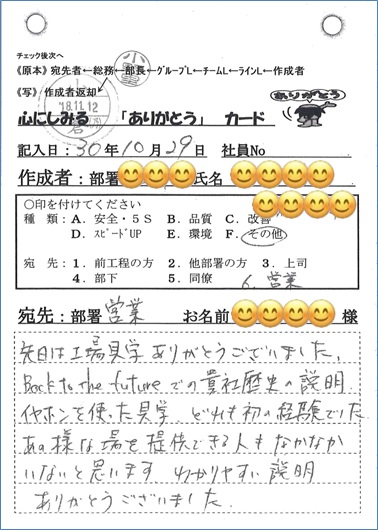 チェック後次へ
《原本》宛先者←総務←部長←グループL←チームL←ラインL←作成者
《写》作成者返却
小 '18.11.12
心にしみる 「ありがとう」 カード
ありがとう
記入日:30年10月29日 社員No
作成者:部署 氏名
○印を付けてください
種 類:A. 安全・5S B. 品質 C. 改善
D. スピードUP E. 環境 F. その他
宛 先:1. 前工程の方 2. 他部署の方 3. 上司
4. 部下 5. 同僚 6. 営業
宛先:部署 営業 お名前 様
先日は工場見学ありがとうございました。
Back to the futureでの貴社歴史の説明
イヤホンを使った見学 どれも初の経験でした
あの様な場を提供できる人もなかなか
いないと思います わかりやすい説明
ありがとうございました。